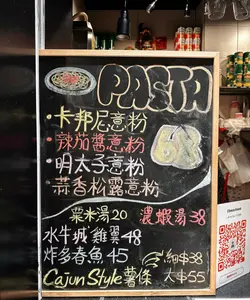 PASTA
·卡邦尼意粉
·辣茄醬意粉
·明太子意粉
·蒜香松露意粉
68
粟米湯20 濃蝦湯38
水牛城雞翼48
炸多春魚45
細$38
Cajun Style薯條 大$55